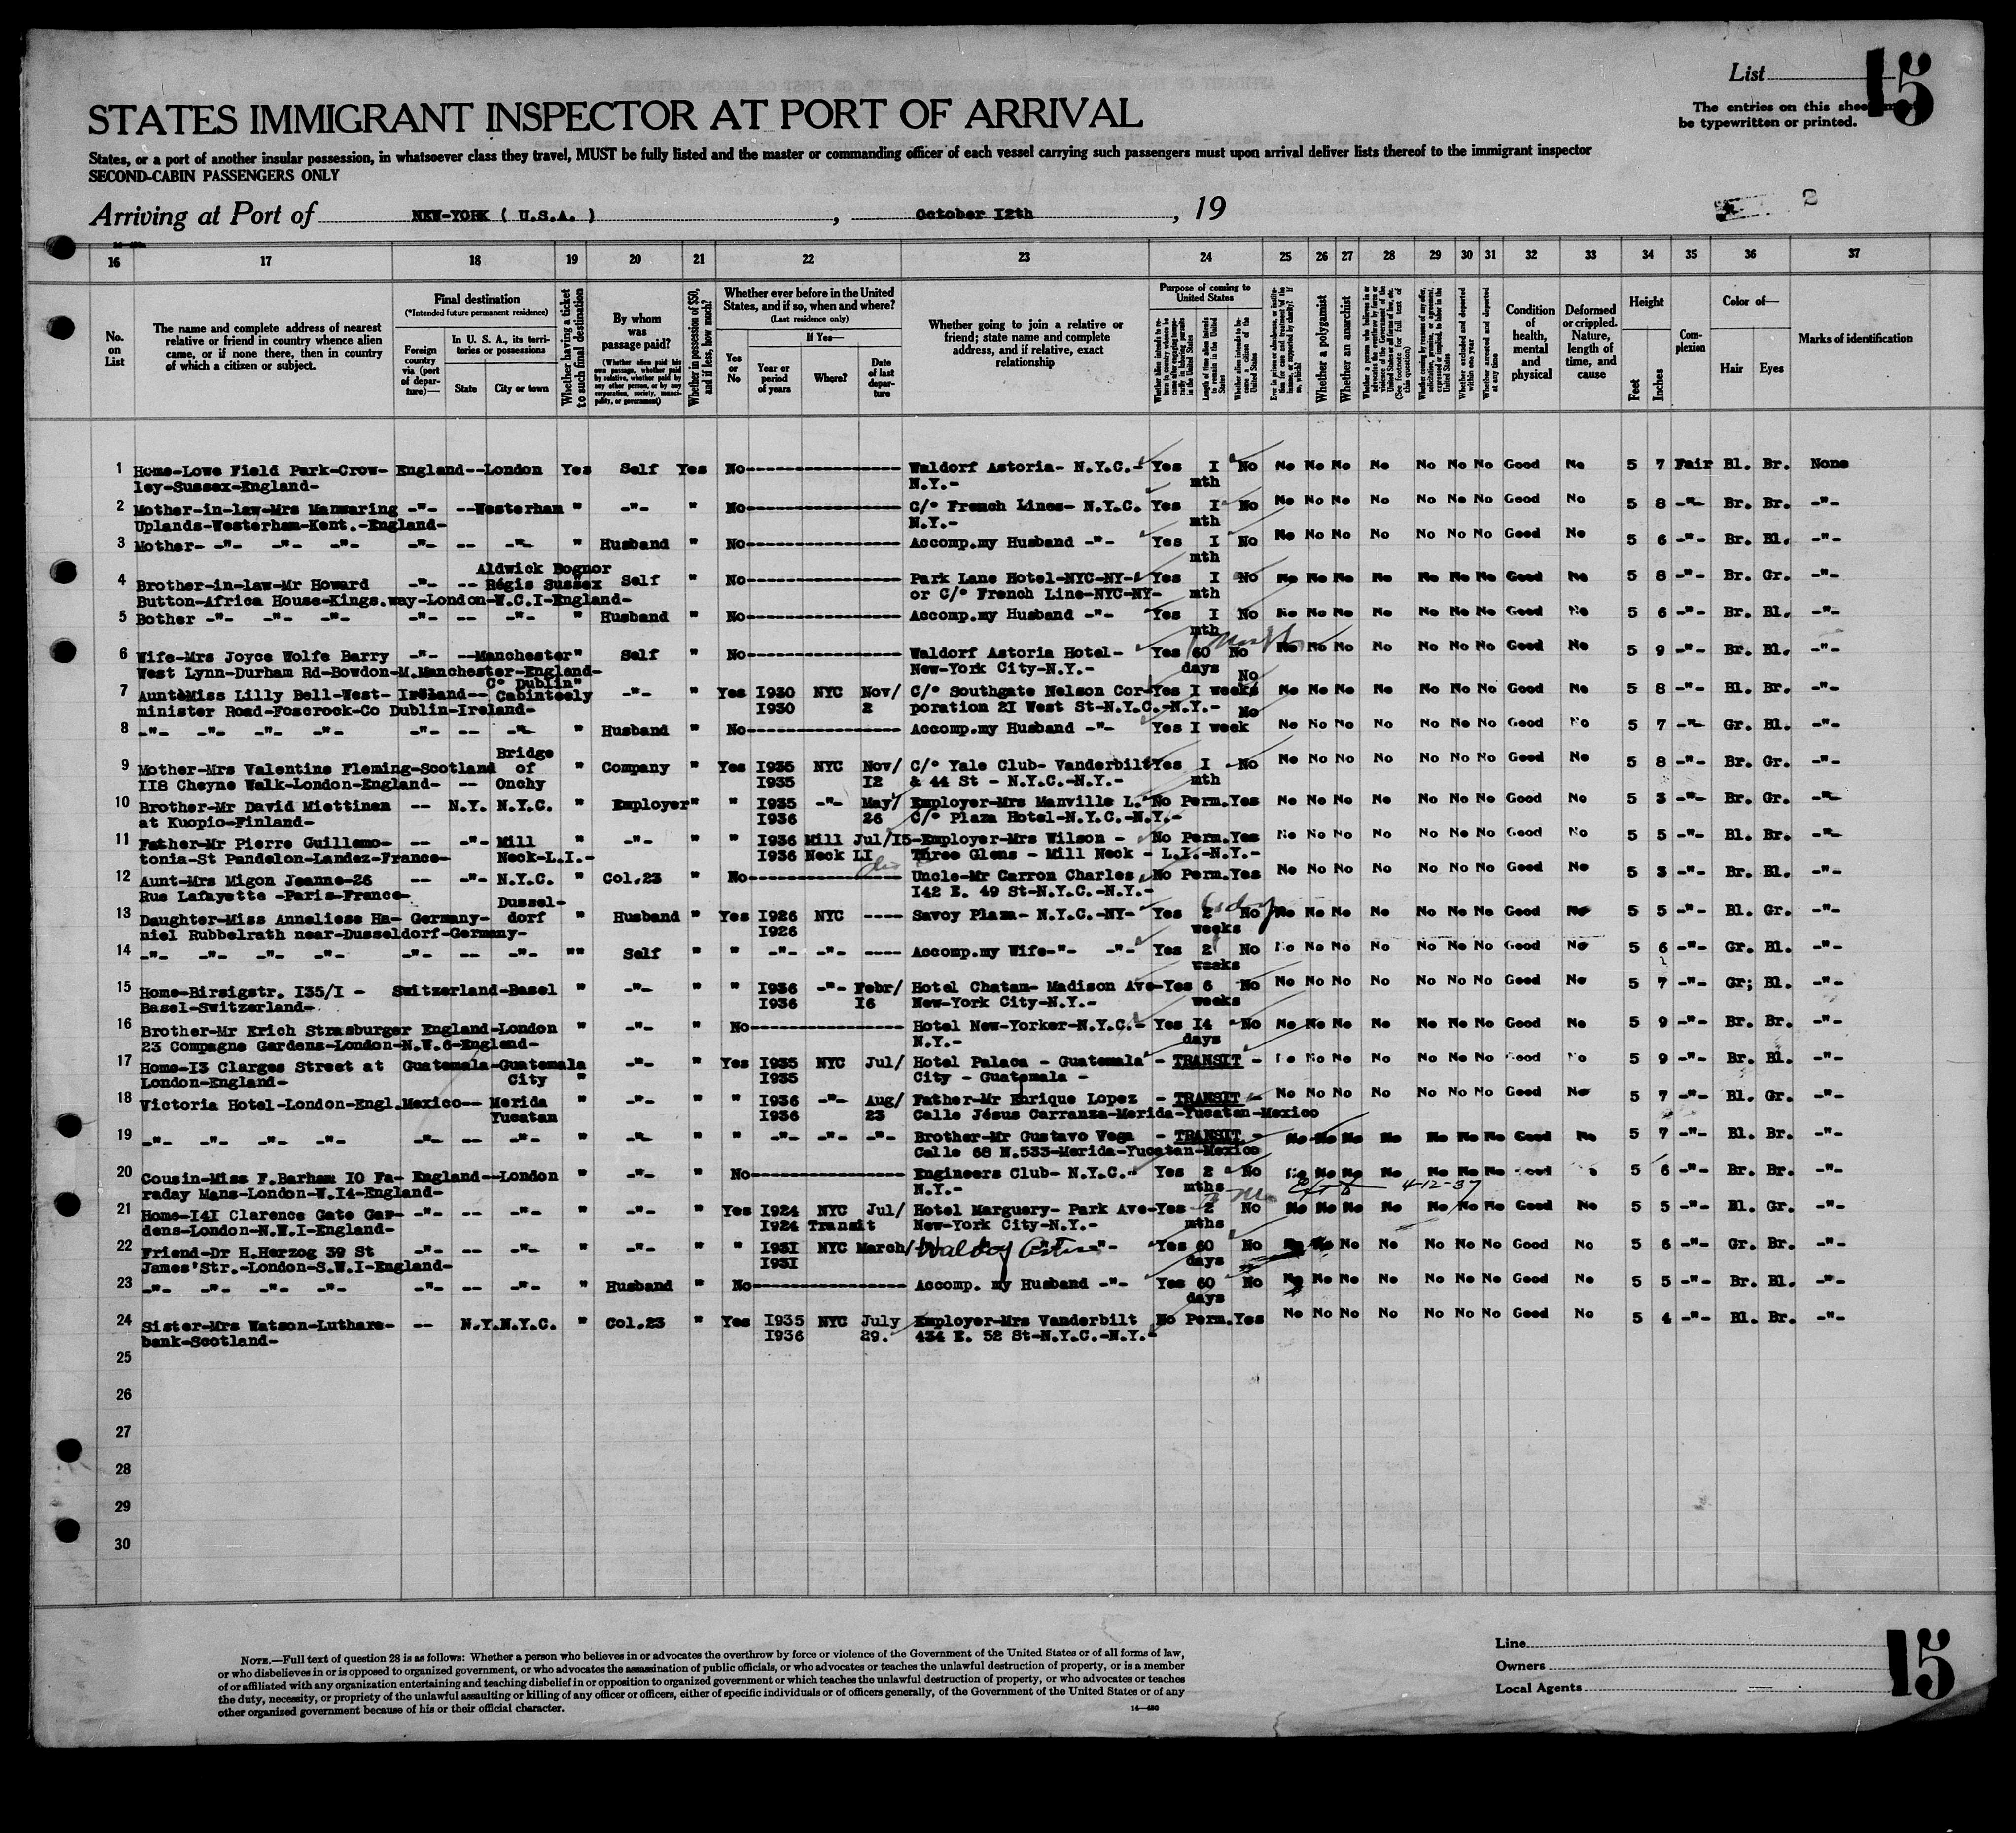 List 15
The entries on this sheet must
be typewritten or printed.
STATES IMMIGRANT INSPECTOR AT PORT OF ARRIVAL
States, or a port of another insular possession, in whatsoever class they travel, MUST be fully listed and the master or commanding officer of each vessel carrying such passengers must upon arrival deliver lists thereof to the immigrant inspector
SECOND-CABIN PASSENGERS ONLY
Arriving at Port of NEW-YORK ( U.S.A. ) , October 12th , 19
2
16 17 18 19 20 21 22 23 24 25 26 27 28 29 30 31 32 33 34 35 36 37
No. on List
The name and complete address of nearest relative or friend in country whence alien came, or if none there, then in country of which a citizen or subject.
Final destination
(*Intended future permanent residence)
Foreign country via (port of departure)—
In U. S. A., its territories or possessions
State City or town
Whether having a ticket to such final destination
By whom was passage paid?
(Whether alien paid his own passage, whether paid by relative, whether paid by any other person, or by any corporation, society, municipality, or government)
Whether in possession of $50, and if less, how much?
Whether ever before in the United States, and if so, when and where?
(Last residence only)
Yes or No
If Yes—
Year or period of years Where? Date of last departure
Whether going to join a relative or friend; state name and complete address, and if relative, exact relationship
Purpose of coming to United States
Length of time alien intends to remain in the United States
Whether alien intends to become a citizen of the United States
Whether a polygamist
Whether an anarchist
Whether excluded and deported within one year
Whether arrested and deported at any time
Condition of health, mental and physical
Deformed or crippled. Nature, length of time, and cause
Height
Feet Inches
Complexion
Color of—
Hair Eyes
Marks of identification
1 Home-Lowe Field Park-Crow- England--London Yes Self Yes No Waldorf Astoria- N.Y.C.- Yes I No No No No No No No No Good No 5 7 Fair Bl. Br. None
ley-Sussex-England- N.Y.- mth
2 Mother-in-law-Mrs Manwaring -"- --Westerham " -"- " No C/° French Lines- N.Y.C. Yes I No No No No No No No No Good No 5 8 -"- Br. Br. -"-
Uplands-Westerham-Kent.-England- N.Y.- mth
3 Mother- -"- -"- -"- -"- -- -"- " Husband " No Accomp.my Husband -"- Yes I No No No No No No No No Good No 5 6 -"- Br. Bl. -"-
mth
Aldwick Bognor
4 Brother-in-law-Mr Howard -"- -- Régis Sussex Self " No Park Lane Hotel-NYC-NY- Yes I No No No No No No No No Good No 5 8 -"- Br. Gr. -"-
Button-Africa House-Kings.way-London-W.C.I-England- or C/° French Line-NYC-NY- mth
5 Bother -"- -"- -"- -"- -- -"- " Husband " No Accomp.my Husband -"- Yes I No No No No No No No No Good No 5 6 -"- Br. Bl. -"-
mth
6 Wife-Mrs Joyce Wolfe Barry -"- --Manchester" Self " No Waldorf Astoria Hotel- Yes 60 No No No No No No No No Good No 5 9 -"- Br. Bl. -"-
West Lynn-Durham Rd-Bowdon-M.Manchester-England- New-York City-N.Y.- days
C° Dublin"
7 Aunt-Miss Lilly Bell-West- Ireland-- Cabinteely -"- " Yes I930 NYC Nov/ C/° Southgate Nelson Cor- Yes I weeks No No No No No No No No Good No 5 8 -"- Bl. Br. -"-
minister Road-Foxcrock-Co Dublin-Ireland- I930 2 poration 2I West St-N.Y.C.-N.Y.-
8 -"- -"- -"- -"- -"- -- -"- " Husband " No Accomp.my Husband -"- Yes I week No No No No No No No No Good No 5 7 -"- Gr. Bl. -"-
Bridge
9 Mother-Mrs Valentine Fleming-Scotland of " Company " Yes I935 NYC Nov/ C/° Yale Club- Vanderbilt Yes I No No No No No No No No Good No 5 8 -"- Br. Gr. -"-
II8 Cheyne Walk-London-England- -- Onchy I935 I2 & 44 St - N.Y.C.-N.Y.- mth
10 Brother-Mr David Miettinen -- N.Y. N.Y.C. " Employer" " I935 -"- May/ Employer-Mrs Manville L. No Perm.Yes No No No No No No No Good No 5 3 -"- Br. Gr. -"-
at Kuopio-Finland- I936 26 C/° Plaza Hotel-N.Y.C.-N.Y.-
11 Father-Mr Pierre Guillemo- -- -"- Mill " -"- " " I936 Mill Jul/I5-Employer-Mrs Wilson - No Perm.Yes No No No No No No No Good No 5 5 -"- Bl. Br. -"-
tonia-St Pandelon-Landez-France- Neck-L.I.- I936 Neck LI Three Glens - Mill Neck - L.I.-N.Y.-
12 Aunt-Mrs Migon Jeanne-26 -- -"- N.Y.C. " Col.23 " No Uncle-Mr Carron Charles No Perm.Yes No No No No No No No Good No 5 3 -"- Br. Bl. -"-
Rue Lafayette -Paris-France- I42 E. 49 St-N.Y.C.-N.Y.-
Dussel-
13 Daughter-Miss Anneliese Ha- Germany- dorf " Husband " Yes I926 NYC ---- Savoy Plaza- N.Y.C.-NY- Yes 2 No No No No No No No No Good No 5 5 -"- Bl. Gr. -"-
niel Rubbelrath near-Dusseldorf-Germany- I926 weeks
14 -"- -"- -"- -"- -"- -- -"- "" Self " " -"- -"- ---- Accomp.my Wife-"- -"- Yes 2 No No No No No No No No Good No 5 6 -"- Gr. Bl. -"-
weeks
15 Home-Birsigstr. I35/I - Switzerland-Basel " -"- " " I936 -"- Febr/ Hotel Chatam- Madison Ave-Yes 6 No No No No No No No No Good No 5 7 -"- Gr; Bl. -"-
Basel-Switzerland- I936 I6 New-York City-N.Y.- weeks
16 Brother-Mr Erich Strasburger England-London " -"- " No Hotel New-Yorker-N.Y.C.- Yes I4 No No No No No No No No Good No 5 9 -"- Br. Br. -"-
23 Compagne Gardens-London-N.W.6-England- N.Y.- days
17 Home-I3 Clarges Street at Guatemala-Guatemala -"- " Yes I935 NYC Jul/ Hotel Palaca - Guatemala - TRANSIT - No No No No No No No Good No 5 9 -"- Br. Bl. -"-
London-England- City " I935 City - Guatemala -
18 Victoria Hotel-London-Engl.Mexico-- Merida " -"- " " I936 -"- Aug/ Father-Mr Enrique Lopez - TRANSIT - No No No No No No No Good No 5 7 -"- Bl. Gr. -"-
Yucatan I936 23 Calle Jésus Carranza-Merida-Yucatan-Mexico
19 -"- -"- -"- -"- -"- -- -"- " -"- " " -"- -"- -"- Brother-Mr Gustavo Vega - TRANSIT - No No No No No No No Good No 5 7 -"- Bl. Br. -"-
Calle 68 N.533-Merida-Yucatan-Mexico
20 Cousin-Miss F.Barham IO Fa- England--London " -"- " No Engineers Club- N.Y.C.- Yes 2 No No No No No No No No Good 5 6 -"- Br. Br. -"-
raday Mans-London-W.I4-England- N.Y.- mths 4-12-37
21 Home-I4I Clarence Gate Gar- -"- -- -"- " -"- " Yes I924 NYC Jul/ Hotel Marguery- Park Ave-Yes 2 No No No No No No No No Good No 5 5 -"- Bl. Gr. -"-
dens-London-N.W.I-England- I924 Transit New-York City-N.Y.- mths
22 Friend-Dr H.Herzog 39 St -"- -- -"- " -"- " " I93I NYC March/ Yes 60 No No No No No No No No Good No 5 6 -"- Gr. Br. -"-
James'Str.-London-S.W.I-England- I93I days
23 -"- -"- -"- -"- -"- -- -"- " Husband " No Accomp. my Husband -"- Yes 60 No No No No No No No No Good No 5 5 -"- Br. Bl. -"-
days
24 Sister-Mrs Watson-Luthars- -- N.Y.N.Y.C. " Col.23 " Yes I935 NYC July Employer-Mrs Vanderbilt No Perm.Yes No No No No No No No Good No 5 4 -"- Bl. Br. -"-
bank-Scotland- I936 29. 434 E. 52 St-N.Y.C.-N.Y.-
25
26
27
28
29
30
NOTE.—Full text of question 28 is as follows: Whether a person who believes in or advocates the overthrow by force or violence of the Government of the United States or of all forms of law,
or who disbelieves in or is opposed to organized government, or who advocates the assassination of public officials, or who advocates or teaches the unlawful destruction of property, or is a member
of or affiliated with any organization entertaining and teaching disbelief in or opposition to organized government or which teaches the unlawful destruction of property, or who advocates or teaches
the duty, necessity, or propriety of the unlawful assaulting or killing of any officer or officers, either of specific individuals or of officers generally, of the Government of the United States or of any
other organized government because of his or their official character.
14—430
Line
Owners
Local Agents
15